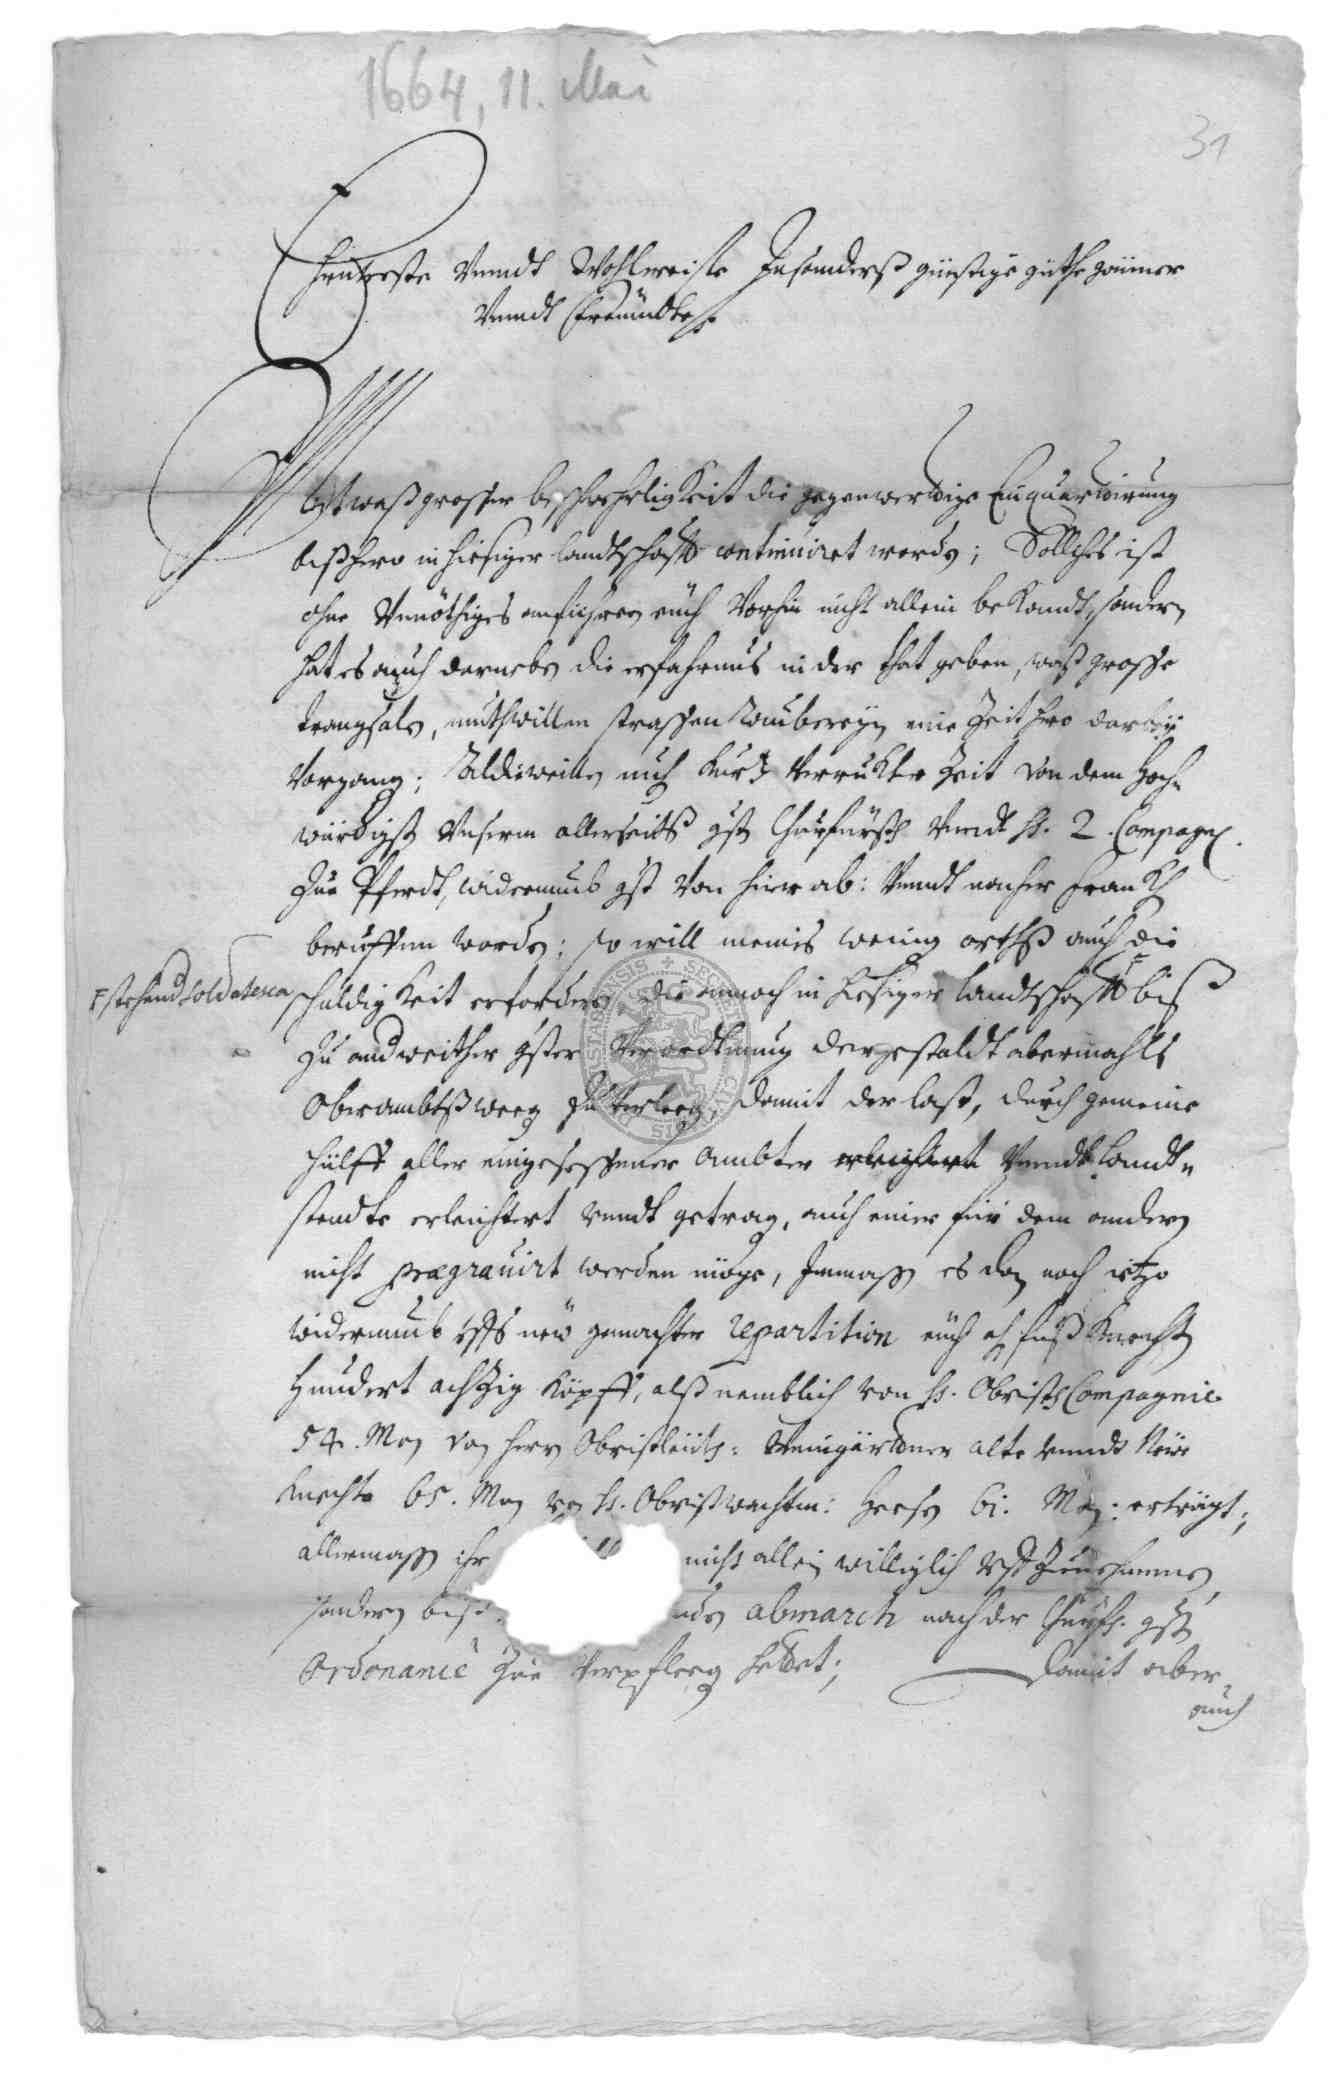 1664, 11. Mai
31
Ehrnveste Vnndt Wohlweise Insonderß günstige guthe gönner
Vnndt Freündte
Mit waß grosser beschwehrligkeit die gegenwerdige Einquardirung
bißhero in hiesiger landtschafft continuiret worden; Solches ist
ohne Vnnöthiges anführen euch Vorhin nicht allein bekandt, sondern
hat es auch darneben die erfahrnus in der that geben, waß grosse
trangsals, muthwillen strassen Raubereyen eine Zeit hero darbey
Vorgang; Alldieweilen nuhn kurtz verrukter Zeit von dem Hoch-
würdigst Vnserm allerseits gst Churfürsten Vnndt H. 2. Compagn.
Zue Pferdt, widerumb gst Von hier ab: Vnndt nacher Franckh
beruffen worden; so will meines wenig orthß auch die
F stehend soldatesca
schuldigkeit erfordern, die annoch in hiesiger landtschafft F biß
zu andweither gster Verordtnung dergestaldt abermahls
Oberambtß weeg zu verleeg, damit der last, durch gemeine
hülff aller eingesessener ambter erleichtert Vnndt landt-
stendte erleichtert vnndt getrag, auch einer für dem andern
nicht prægravirt werden möge, Inmassen es dan noch ietzo
widerumb vffs new gemachter repartition euch ahn fuß Knechten
Hundert achtzig köpff, alß nemblich von H. Obrist Compagnie
54. Man von Herrn Obristleüth: Weingärdner alte vnndt Newe
Knecht 65. Man von H. Obristwachtm: Heesen 61. Man: erträgt;
allermassen ihr nicht allein williglich vff Zunehmen,
sondern biß abmarch nach der Churfs. gst
Ordonanie Zue Verpfleeg hettet; Damit aber
auch